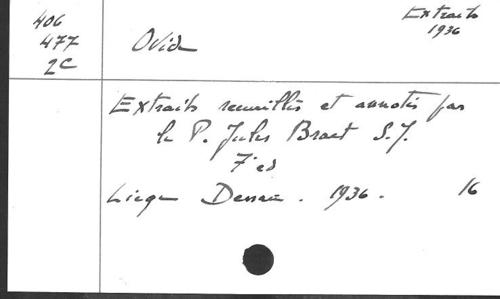 406
477
2C
Ovide
Extraits
1936
Extraits recueillis et annotés par
le P. Jules Braet S.J.
7e ed
Liège Dessain . 1936 . 16